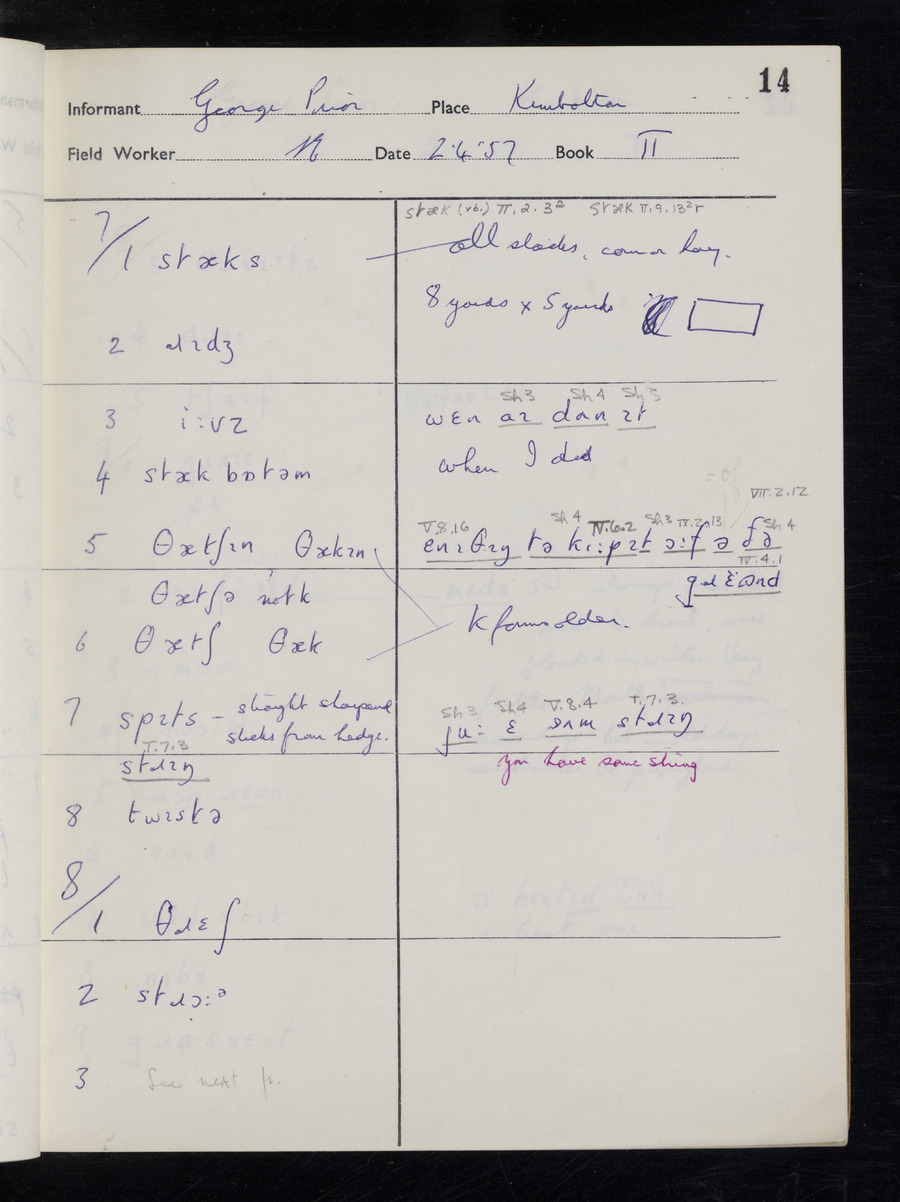 14
Informant George Prior Place Kimbolton
Field Worker Date 2·4·57 Book II
7/1 stæks
stæk (vb.) II.2.3 stæk II.9.13
all stacks, corn or hay.
8 yards x 5 yards
2 ɹɪdʒ
3 i:vz
Sh3 Sh4 Sh3
wɛn aɪ dʌn ɪt
4 stæk bɒtəm
when I did
VII.2.12
V.8.16 Sh4 IV.6.2 Sh3 IV.2.13 Sh4
5 θætʃɪn θækɪn
ɛnɪθɪŋ tə ki:p ɪt ɔ:f ə ðə
IV.4.1
gɹɛʊnd
θætʃə not k
K forms older.
6 θætʃ θæk
7 spɪts – straight sharpened
sticks from hedge.
Sh3 Sh4 V.8.4 I.7.3.
ju: ɛ sʌm stɹɪŋ
I.7.3
stɹɪŋ
you have some string
8 twɪstə
8/1 θɹɛʃ
2 stɹɔ:ə
3 See next p.